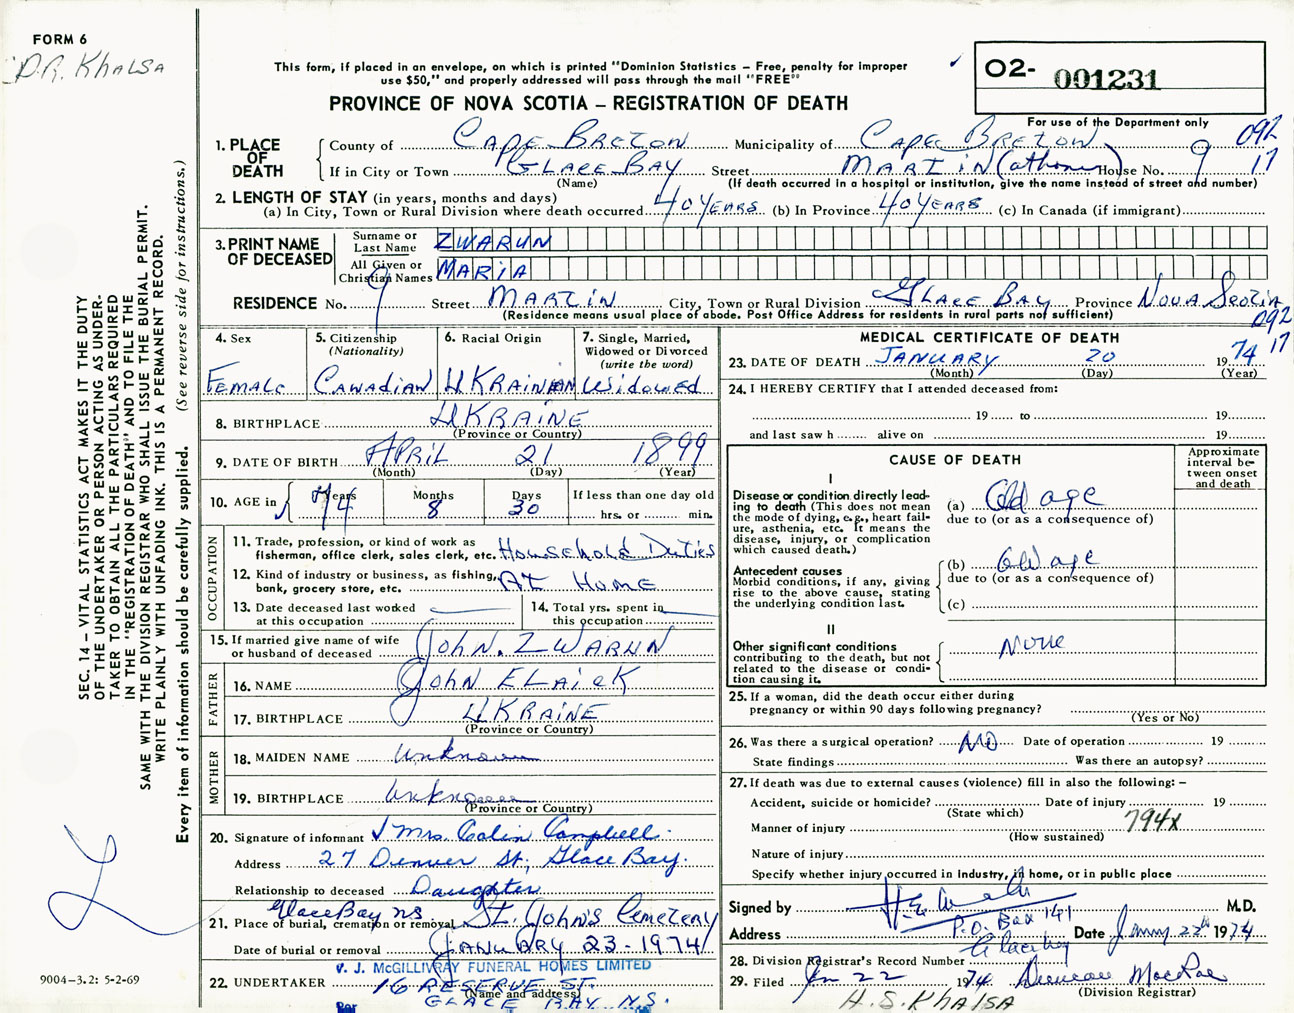 FORM 6
D.R. Khalsa
This form, if placed in an envelope, on which is printed "Dominion Statistics – Free, penalty for improper
use $50," and properly addressed will pass through the mail "FREE"
PROVINCE OF NOVA SCOTIA – REGISTRATION OF DEATH
02- 001231
For use of the Department only
092
17
1. PLACE OF DEATH
County of CAPE BRETON Municipality of CAPE BRETON
If in City or Town GLACE BAY Street MARTIN (at home) House No. 9
(Name) (If death occurred in a hospital or institution, give the name instead of street and number)
2. LENGTH OF STAY (in years, months and days)
(a) In City, Town or Rural Division where death occurred 40 YEARS (b) In Province 40 YEARS (c) In Canada (if immigrant)
3. PRINT NAME OF DECEASED
Surname or Last Name ZWARUN
All Given or Christian Names MARIA
RESIDENCE No. 9 Street MARTIN City, Town or Rural Division GLACE BAY Province NOVA SCOTIA
(Residence means usual place of abode. Post Office Address for residents in rural parts not sufficient)
092
17
4. Sex
Female
5. Citizenship (Nationality)
Canadian
6. Racial Origin
UKRAINIAN
7. Single, Married, Widowed or Divorced (write the word)
Widowed
8. BIRTHPLACE UKRAINE
(Province or Country)
9. DATE OF BIRTH APRIL 21 1899
(Month) (Day) (Year)
10. AGE in Years 74 Months 8 Days 30 If less than one day old
hrs. or min.
OCCUPATION
11. Trade, profession, or kind of work as
fisherman, office clerk, sales clerk, etc. Household Duties
12. Kind of industry or business, as fishing,
bank, grocery store, etc. AT HOME
13. Date deceased last worked
at this occupation
14. Total yrs. spent in
this occupation
15. If married give name of wife
or husband of deceased JOHN. ZWARUN
FATHER
16. NAME JOHN ELAICK
17. BIRTHPLACE UKRAINE
(Province or Country)
MOTHER
18. MAIDEN NAME Unknown
19. BIRTHPLACE Unknown
(Province or Country)
20. Signature of informant Mrs. Colin Campbell.
Address 27 Denver St., Glace Bay.
Relationship to deceased Daughter
Glace Bay NS
21. Place of burial, cremation or removal St. John's Cemetery
Date of burial or removal JANUARY 23 - 1974
V. J. McGILLIVRAY FUNERAL HOMES LIMITED
22. UNDERTAKER 16 RESERVE ST.
(Name and address)
Per GLACE BAY, N.S.
MEDICAL CERTIFICATE OF DEATH
23. DATE OF DEATH JANUARY 20 1974
(Month) (Day) (Year)
24. I HEREBY CERTIFY that I attended deceased from:
19 to 19
and last saw h alive on 19
CAUSE OF DEATH
Approximate interval between onset and death
I
Disease or condition directly lead-
ing to death (This does not mean
the mode of dying, e.g., heart fail-
ure, asthenia, etc. It means the
disease, injury, or complication
which caused death.)
(a) Old age
due to (or as a consequence of)
Antecedent causes
Morbid conditions, if any, giving
rise to the above cause, stating
the underlying condition last.
(b) Old age
due to (or as a consequence of)
(c)
II
Other significant conditions
contributing to the death, but not
related to the disease or condi-
tion causing it.
None
25. If a woman, did the death occur either during
pregnancy or within 90 days following pregnancy?
(Yes or No)
26. Was there a surgical operation? NO Date of operation 19
State findings Was there an autopsy?
27. If death was due to external causes (violence) fill in also the following: –
Accident, suicide or homicide? Date of injury 19
(State which)
Manner of injury 794X
(How sustained)
Nature of injury
Specify whether injury occurred in industry, in home, or in public place
Signed by M.D.
Address P.O. Box 141 Glace Bay Date 22nd 1974
28. Division Registrar's Record Number
29. Filed Jan 22 1974 Duncan MacRae
(Division Registrar)
H.S. Khalsa
SEC. 14 – VITAL STATISTICS ACT MAKES IT THE DUTY
OF THE UNDERTAKER OR PERSON ACTING AS UNDER-
TAKER TO OBTAIN ALL THE PARTICULARS REQUIRED
IN THE "REGISTRATION OF DEATH" AND TO FILE THE
SAME WITH THE DIVISION REGISTRAR WHO SHALL ISSUE THE BURIAL PERMIT.
WRITE PLAINLY WITH UNFADING INK. THIS IS A PERMANENT RECORD.
Every item of information should be carefully supplied. (See reverse side for instructions.)
9004–3.2: 5-2-69